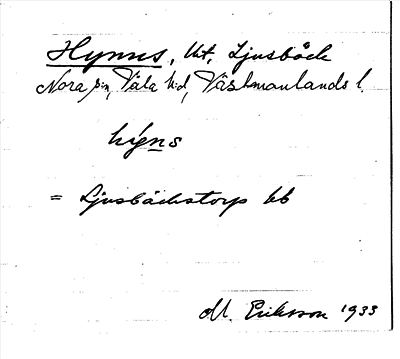 Hynns, Kt, Ljusbäck
Nora sn, Våla hd, Västmanlands l.
hýns
= Ljusbäckstorp bb
M. Eriksson 1933